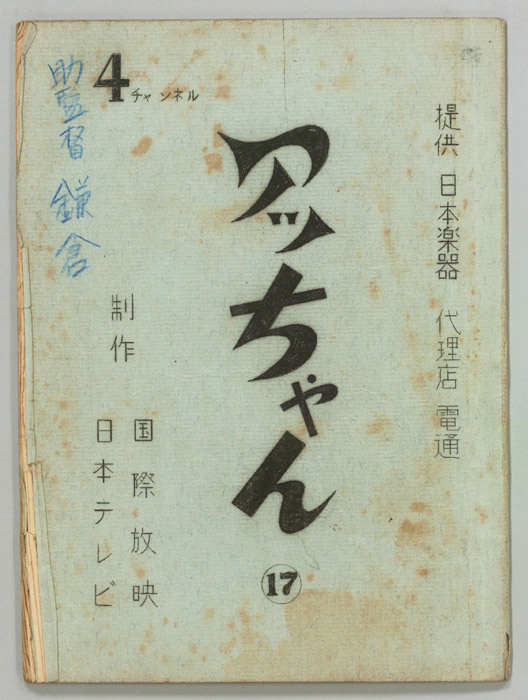 提供 日本楽器 代理店 電通
アッちゃん
⑰
4チャンネル
制作
国際放映
日本テレビ
助監督 鎌倉